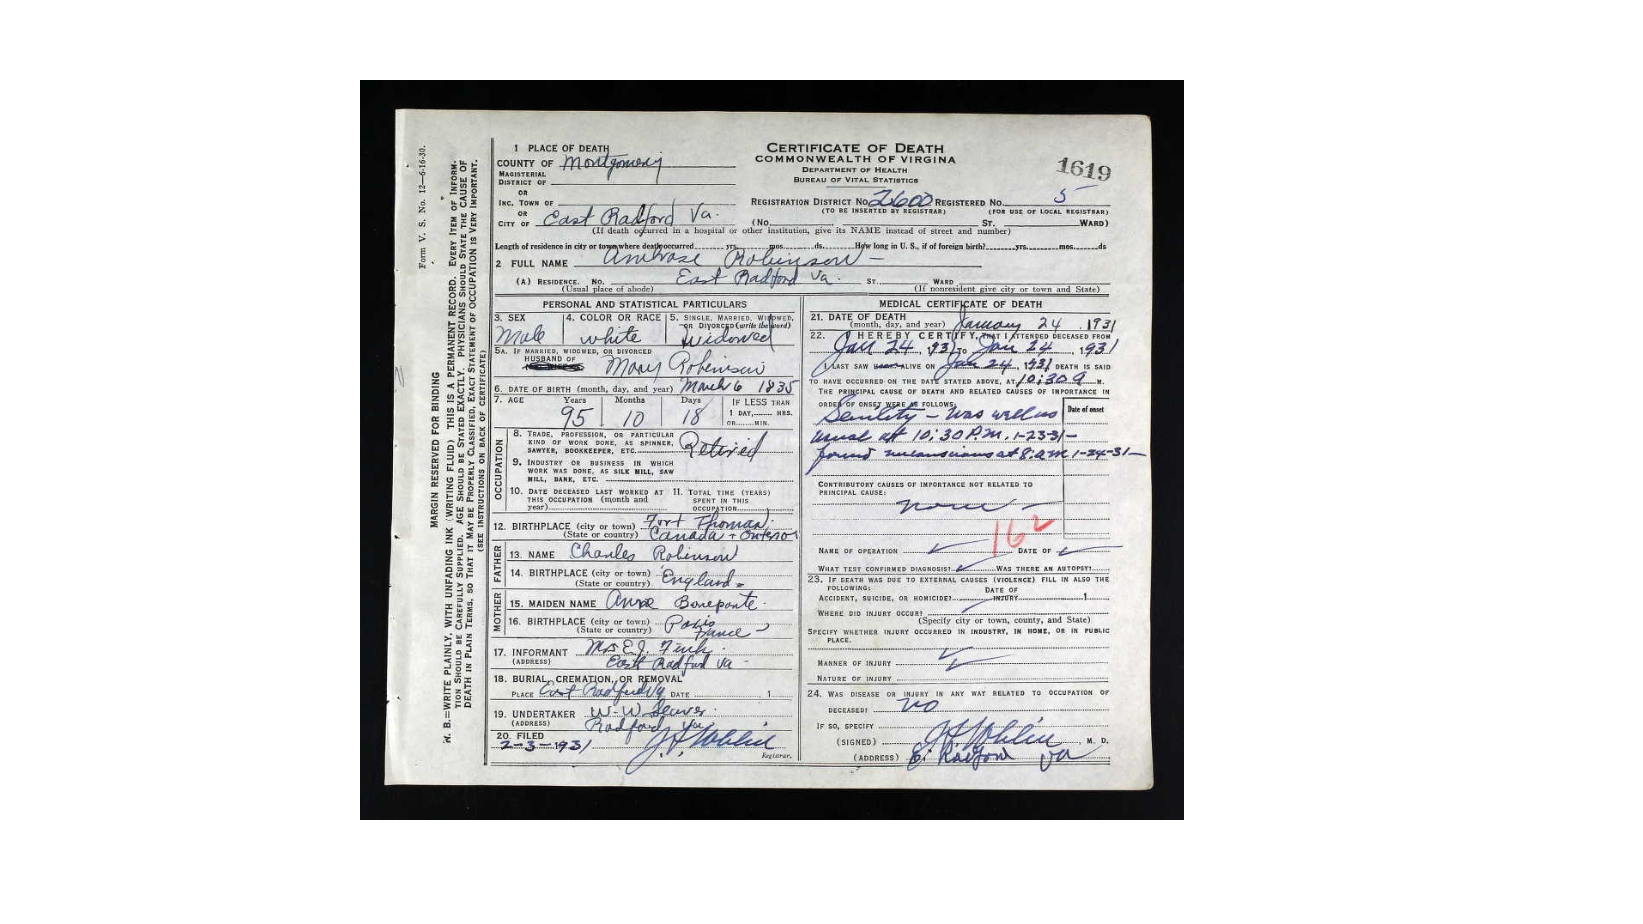 Form V. S. No. 12—6-16-30.
MARGIN RESERVED FOR BINDING
N. B.—WRITE PLAINLY, WITH UNFADING INK (WRITING FLUID) THIS IS A PERMANENT RECORD. EVERY ITEM OF INFORM-
TION SHOULD BE CAREFULLY SUPPLIED. AGE SHOULD BE STATED EXACTLY. PHYSICIANS SHOULD STATE THE CAUSE OF
DEATH IN PLAIN TERMS, SO THAT IT MAY BE PROPERLY CLASSIFIED. EXACT STATEMENT OF OCCUPATION IS VERY IMPORTANT.
(SEE INSTRUCTIONS ON BACK OF CERTIFICATE)
1 PLACE OF DEATH
COUNTY OF Montgomery
MAGISTERIAL
DISTRICT OF
OR
INC. TOWN OF
OR
CITY OF East Radford Va.
CERTIFICATE OF DEATH
COMMONWEALTH OF VIRGINA
DEPARTMENT OF HEALTH
BUREAU OF VITAL STATISTICS
1619
REGISTRATION DISTRICT No. 2600 REGISTERED No. 5
(TO BE INSERTED BY REGISTRAR) (FOR USE OF LOCAL REGISTRAR)
(No. ST. WARD)
(If death occurred in a hospital or other institution, give its NAME instead of street and number)
Length of residence in city or town where death occurred yrs. mos. ds. How long in U. S., if of foreign birth? yrs. mos. ds
2 FULL NAME Ambrose Robinson
(A) RESIDENCE. No. East Radford Va. ST. WARD
(Usual place of abode) (If nonresident give city or town and State)
PERSONAL AND STATISTICAL PARTICULARS
3. SEX 4. COLOR OR RACE 5. SINGLE, MARRIED, WIDOWED,
OR DIVORCED (write the word)
Male white Widowed
5A. IF MARRIED, WIDOWED, OR DIVORCED
HUSBAND OF Mary Robinson
6. DATE OF BIRTH (month, day, and year) March 6 1835
7. AGE Years Months Days IF LESS THAN
1 DAY, HRS.
OR MIN.
95 10 18
OCCUPATION
8. TRADE, PROFESSION, OR PARTICULAR
KIND OF WORK DONE, AS SPINNER,
SAWYER, BOOKKEEPER, ETC. Retired
9. INDUSTRY OR BUSINESS IN WHICH
WORK WAS DONE, AS SILK MILL, SAW
MILL, BANK, ETC.
10. DATE DECEASED LAST WORKED AT 11. TOTAL TIME (YEARS)
THIS OCCUPATION (month and SPENT IN THIS
year) OCCUPATION
12. BIRTHPLACE (city or town) Fort Thomas
(State or country) Canada +
FATHER
13. NAME Charles Robinson
14. BIRTHPLACE (city or town)
(State or country) England
MOTHER
15. MAIDEN NAME Anne Boneparte
16. BIRTHPLACE (city or town) Paris
(State or country) France
17. INFORMANT Mrs E. J.
(ADDRESS) East Radford Va
18. BURIAL, CREMATION, OR REMOVAL
PLACE East Radford Va DATE 1
19. UNDERTAKER W. W.
(ADDRESS) Radford Va
20. FILED
2-3-1931
Registrar.
MEDICAL CERTIFICATE OF DEATH
21. DATE OF DEATH
(month, day, and year) January 24 1931
22. I HEREBY CERTIFY, THAT I ATTENDED DECEASED FROM
Jan 24 1931 TO Jan 24, 1931
I LAST SAW ALIVE ON Jan 24, 1931 DEATH IS SAID
TO HAVE OCCURRED ON THE DATE STATED ABOVE, AT 10:30 M.
THE PRINCIPAL CAUSE OF DEATH AND RELATED CAUSES OF IMPORTANCE IN
ORDER OF ONSET WERE AS FOLLOWS: Date of onset
Senility – Was well as
usual at 10:30 P.M. 1-23-31–
found unconscious at 8 a.m 1-24-31–
CONTRIBUTORY CAUSES OF IMPORTANCE NOT RELATED TO
PRINCIPAL CAUSE:
none –
162
NAME OF OPERATION DATE OF
WHAT TEST CONFIRMED DIAGNOSIS? WAS THERE AN AUTOPSY?
23. IF DEATH WAS DUE TO EXTERNAL CAUSES (VIOLENCE) FILL IN ALSO THE
FOLLOWING:
DATE OF
ACCIDENT, SUICIDE, OR HOMICIDE? INJURY 1
WHERE DID INJURY OCCUR?
(Specify city or town, county, and State)
SPECIFY WHETHER INJURY OCCURRED IN INDUSTRY, IN HOME, OR IN PUBLIC
PLACE.
MANNER OF INJURY
NATURE OF INJURY
24. WAS DISEASE OR INJURY IN ANY WAY RELATED TO OCCUPATION OF
DECEASED? No
IF SO, SPECIFY
(SIGNED) M. D.
(ADDRESS) E. Radford Va